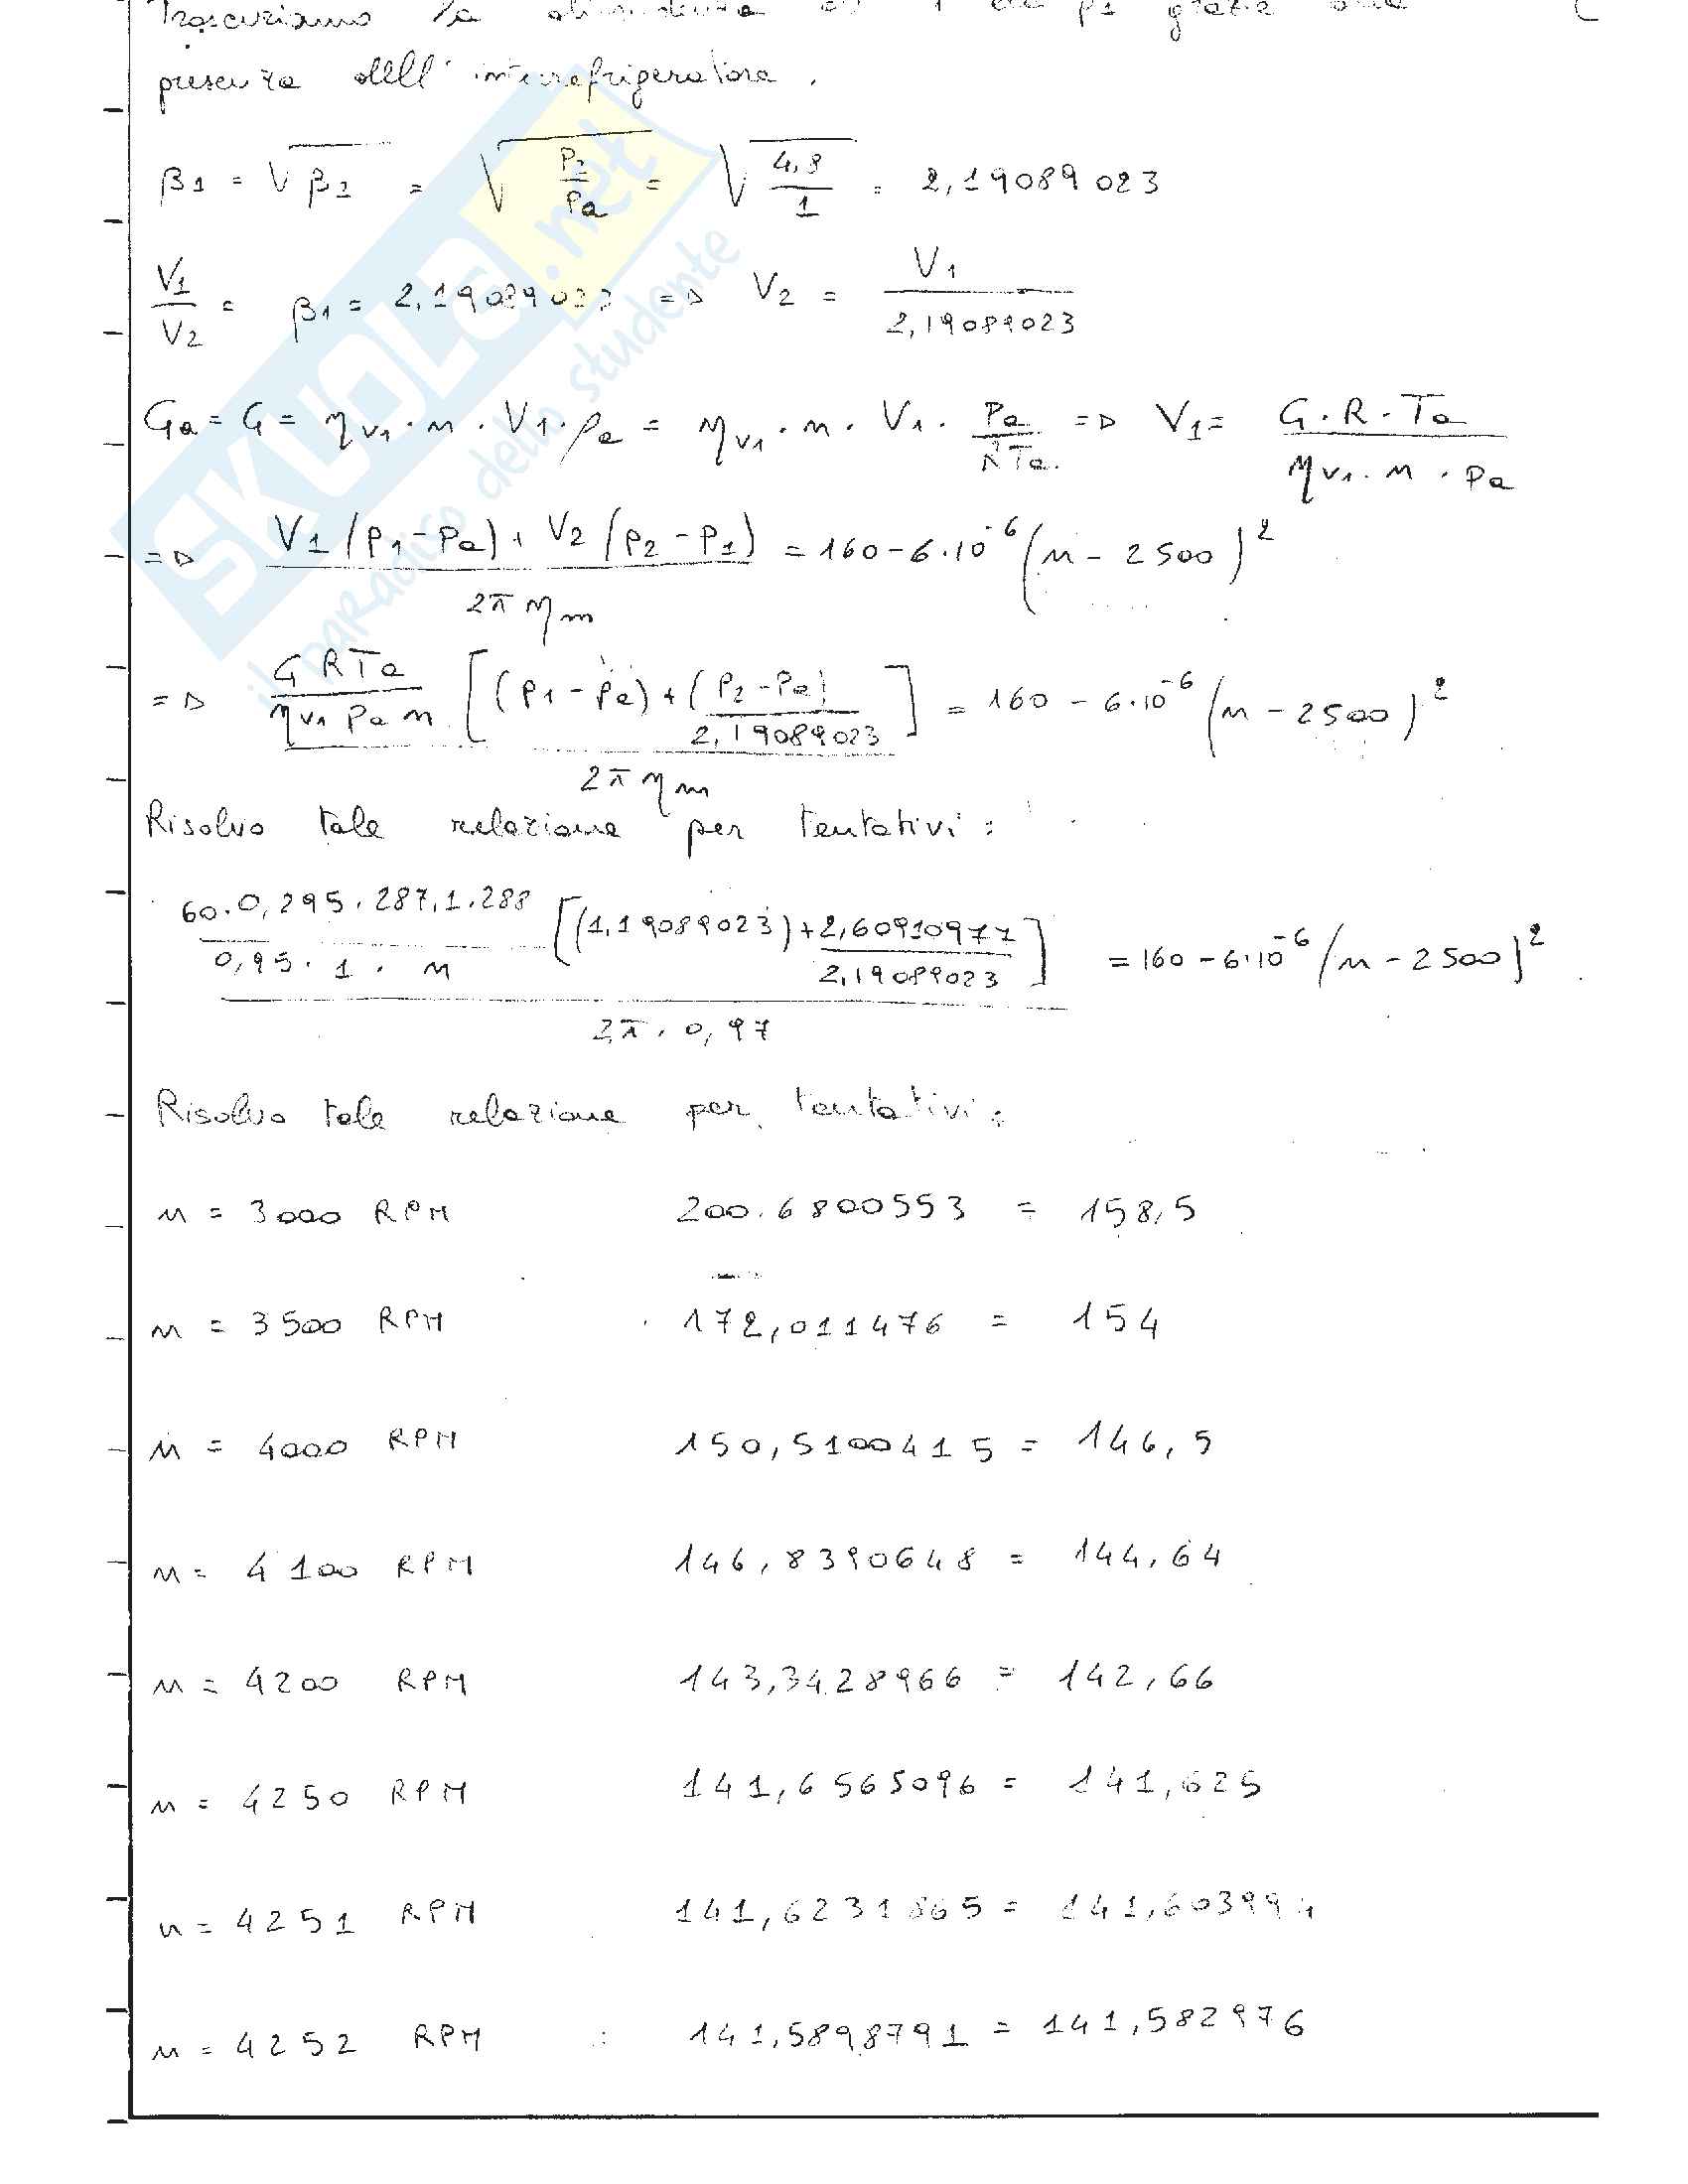 Trascuriamo la di da p1 grazie
presenza dell' interrefrigeratore.
β1 = √β2 = √(P2/Pa) = √(4,8/1) = 2,19089023
V1/V2 = β1 = 2,19089023 => V2 = V1/2,19089023
Ga = G = ηv1 · n · V1 · ρa = ηv1 · n · V1 · Pa/RTa => V1 = G·R·Ta/(ηv1 · n · Pa)
=> [V1 (p1-Pa) + V2 (p2-p1)]/(2π ηm) = 160 - 6·10⁻⁶ (n - 2500)²
=> (G R Ta)/(ηv1 Pa n) [(P1 - Pa) + (P2 - Pa)/2,19089023]/(2π ηm) = 160 - 6·10⁻⁶ (n - 2500)²
Risolvo tale relazione per tentativi:
(60·0,295·287,1·288)/(0,95·1·n) [(1,19089023) + 2,60910977/2,19089023]/(2π · 0,97) = 160 - 6·10⁻⁶ (n - 2500)²
Risolvo tale relazione per tentativi:
n = 3000 RPM 200.6800553 = 158,5
n = 3500 RPM 172,011476 = 154
n = 4000 RPM 150,5100415 = 146,5
n = 4100 RPM 146,8390648 = 144,64
n = 4200 RPM 143,3428966 = 142,66
n = 4250 RPM 141,6565096 = 141,625
n = 4251 RPM 141,6231865 = 141,603994
n = 4252 RPM 141,5898791 = 141,582976
SKUOLA.net
il paradiso dello studente